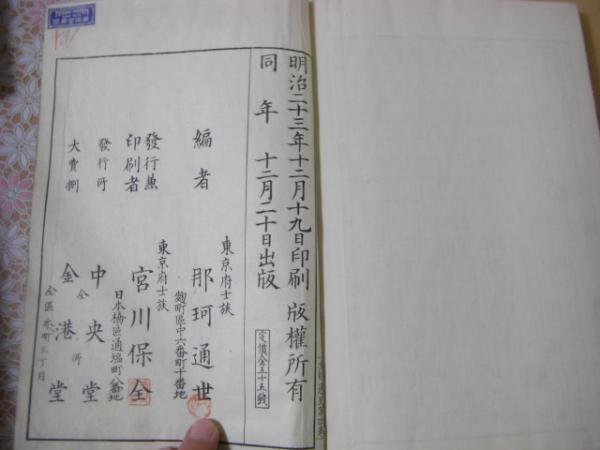 明治二十三年十二月十九日印刷 版權所有
同年 十二月二十日出版
定價金五十五錢
東京府士族
編者 那珂通世
麹町區中六番町十番地
東京府士族
發行兼印刷者 宮川保全
日本橋區通塩町八番地
發行所 中央堂
仝所
大賣捌 金港堂
仝區本町三丁目